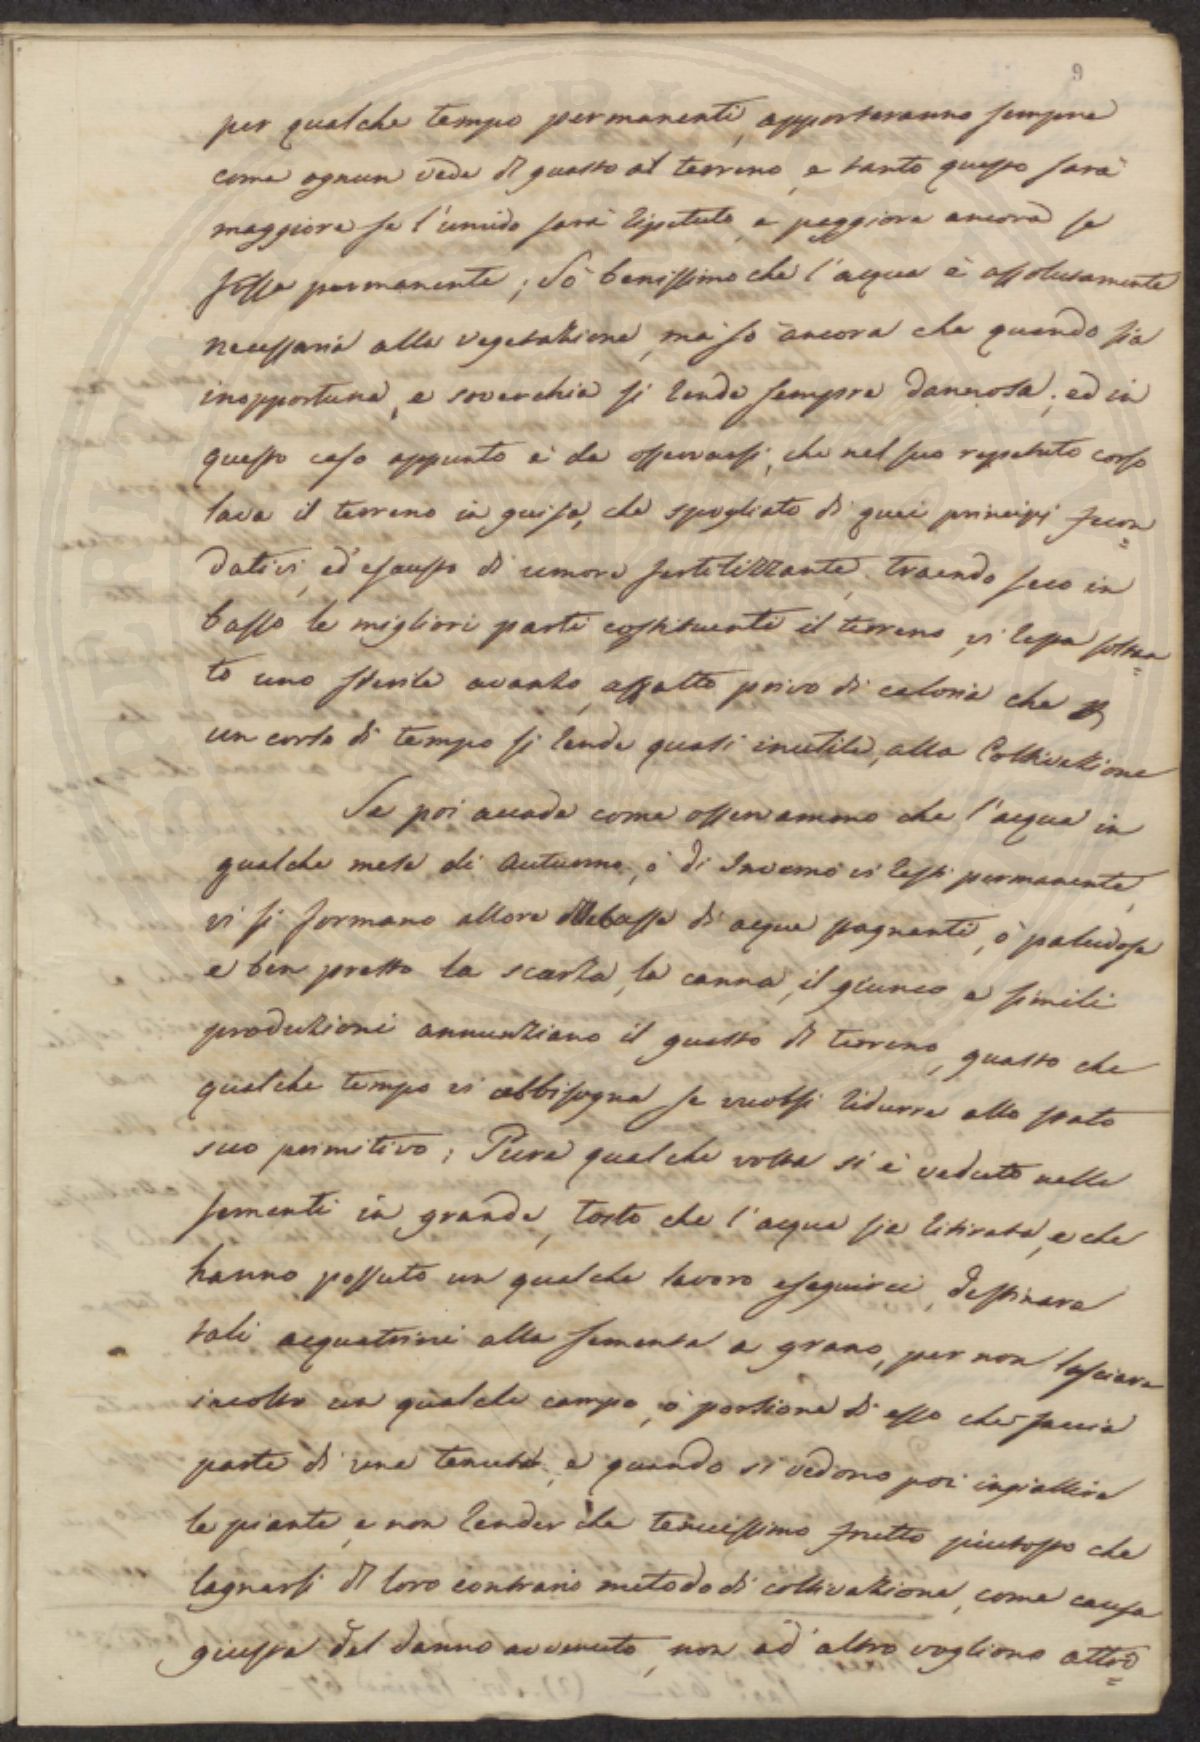 9
per qualche tempo permanenti, apporteranno sempre
come ognun vede di guasto al terreno, e tanto questo sarà
maggiore se l'umido sarà ripetuto, e peggiore ancora se
fosse permanente; Sò benissimo che l'acqua è assolutamente
necessaria alla vegetazione, ma sò ancora che quando sia
inopportuna, e soverchia si rende sempre dannosa; ed in
questo caso appunto è da osservarsi, che nel suo ripetuto corso
lava il terreno in guisa, che spogliato di quei principj fecon=
dativi, ed esausto di umore fertilizzante, traendo seco in
basso le migliori parti costituenti il terreno, vi lascia soltan=
to uno sterile avanzo, affatto privo di caloria che
un corso di tempo si rende quasi inutile, alla Coltivazione
Se poi accade come osservammo che l'acqua in
qualche mese di Autunno, ò di Inverno vi resti permanente,
vi si formano allora dille basse di acque stagnanti, ò paludose
e ben presto la scarza, la canna, il giunco e simili
produzioni annunziano il guasto di terreno, guasto che
qualche tempo vi abbisogna se vuolsi ridurre allo stato
suo primitivo; Pure qualche volta si è veduto nelle
sementi in grande, tosto che l'acqua sia ritirata, e che
hanno possuto un qualche lavoro eseguirci, destinare
tali acquatrini alla sementa a grano, per non lasciare
incolto un qualche campo, ò porzione di esso che faccia
parte di una tenuta, e quando si vedono poi ingiallire
le piante, e non render che tenuissimo frutto piuttosto che
lagnarsi di loro contrario metodo di coltivazione, come causa
giusta del danno avvenuto, non ad altro vogliono attri=